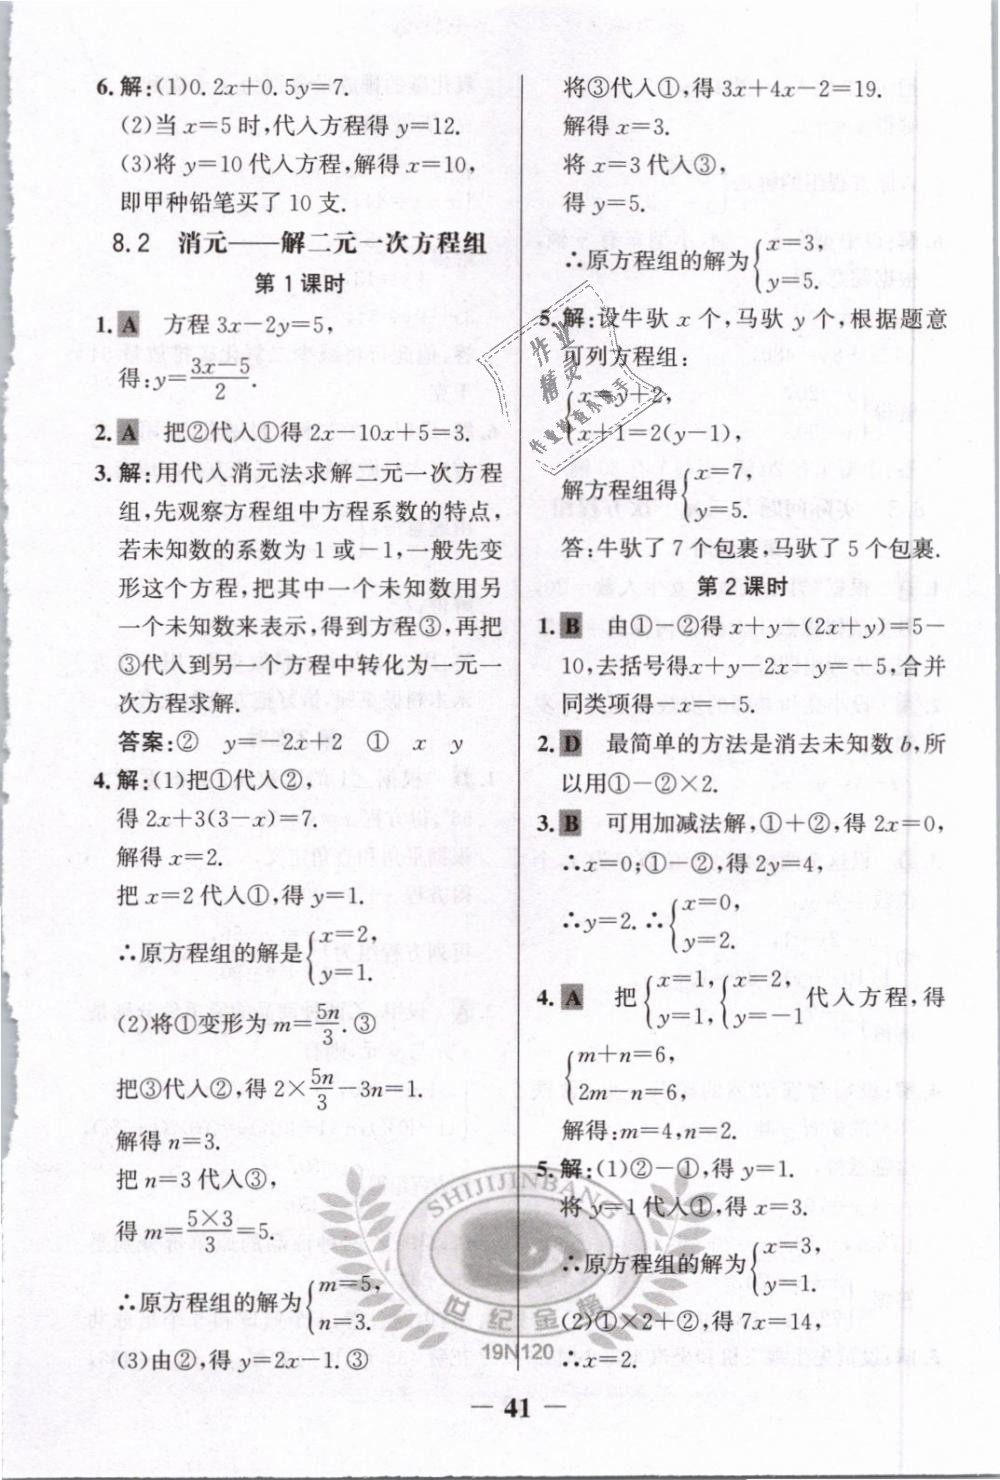 6.解:(1)0.2x+0.5y=7.
(2)当 x=5 时,代入方程得 y=12.
(3)将 y=10 代入方程,解得 x=10,
即甲种铅笔买了 10 支.
8.2 消元——解二元一次方程组
第 1 课时
1. A 方程 3x-2y=5,
得:y=\frac{3x-5}{2}.
2. A 把②代入①得 2x-10x+5=3.
3.解:用代入消元法求解二元一次方程
组,先观察方程组中方程系数的特点,
若未知数的系数为 1 或-1,一般先变
形这个方程,把其中一个未知数用另
一个未知数来表示,得到方程③,再把
③代入到另一个方程中转化为一元一
次方程求解.
答案:② y=-2x+2 ① x y
4.解:(1)把①代入②,
得 2x+3(3-x)=7.
解得 x=2.
把 x=2 代入①,得 y=1.
∴原方程组的解是{x=2,
y=1.
(2)将①变形为 m=\frac{5n}{3}.③
把③代入②,得 2×\frac{5n}{3}-3n=1.
解得 n=3.
把 n=3 代入③,
得 m=\frac{5×3}{3}=5.
∴原方程组的解为{m=5,
n=3.
(3)由②,得 y=2x-1.③
将③代入①,得 3x+4x-2=19.
解得 x=3.
将 x=3 代入③,
得 y=5.
∴原方程组的解为{x=3,
y=5.
5.解:设牛驮 x 个,马驮 y 个,根据题意
可列方程组:
{x=y+2,
x+1=2(y-1),
解方程组得{x=7,
y=5.
答:牛驮了 7 个包裹,马驮了 5 个包裹.
第 2 课时
1. B 由①-②得 x+y-(2x+y)=5-
10,去括号得x+y-2x-y=-5,合并
同类项得-x=-5.
2. D 最简单的方法是消去未知数 b,所
以用①-②×2.
3. B 可用加减法解,①+②,得 2x=0,
∴x=0;①-②,得 2y=4,
∴y=2.∴{x=0,
y=2.
4. A 把{x=1,
y=1,{x=2,
y=-1 代入方程,得
{m+n=6,
2m-n=6,
解得:m=4,n=2.
5.解:(1)②-①,得 y=1.
将 y=1 代入①,得 x=3.
∴原方程组的解为{x=3,
y=1.
(2)①×2+②,得 7x=14,
∴x=2.
作业
精灵
作业检查小助手
SHIJIJINBANG
世纪金榜
19N120
— 41 —